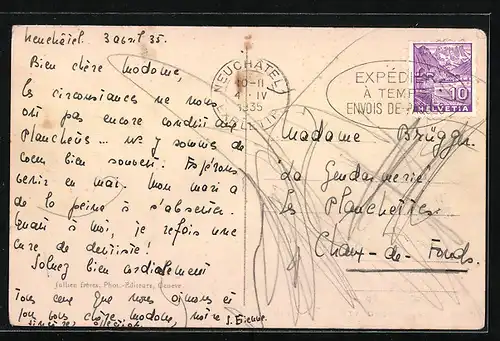 Neuchâtel. 3 avril 35.
Bien chère Madame,
les circonstances ne nous
ont pas encore conduit aux
Planchettes ... n/ y sommes de
coeur bien souvent. Espérons
venir en mai. Mon mari a
de la peine à s'absenter.
Quant à moi, je refais une
cure de dentiste!
Saluez bien cordialement
Jullien frères, Phot.-Editeurs, Genève
tous ceux que nous aimons et
vous chère Madame, notre
NEUCHATEL
10-11
IV
1935
EXPÉDIER
À TEMPS
ENVOIS DE
10
HELVETIA
Madame Brügger
La Gendarmerie
Les Planchettes
Chaux-de-Fonds.